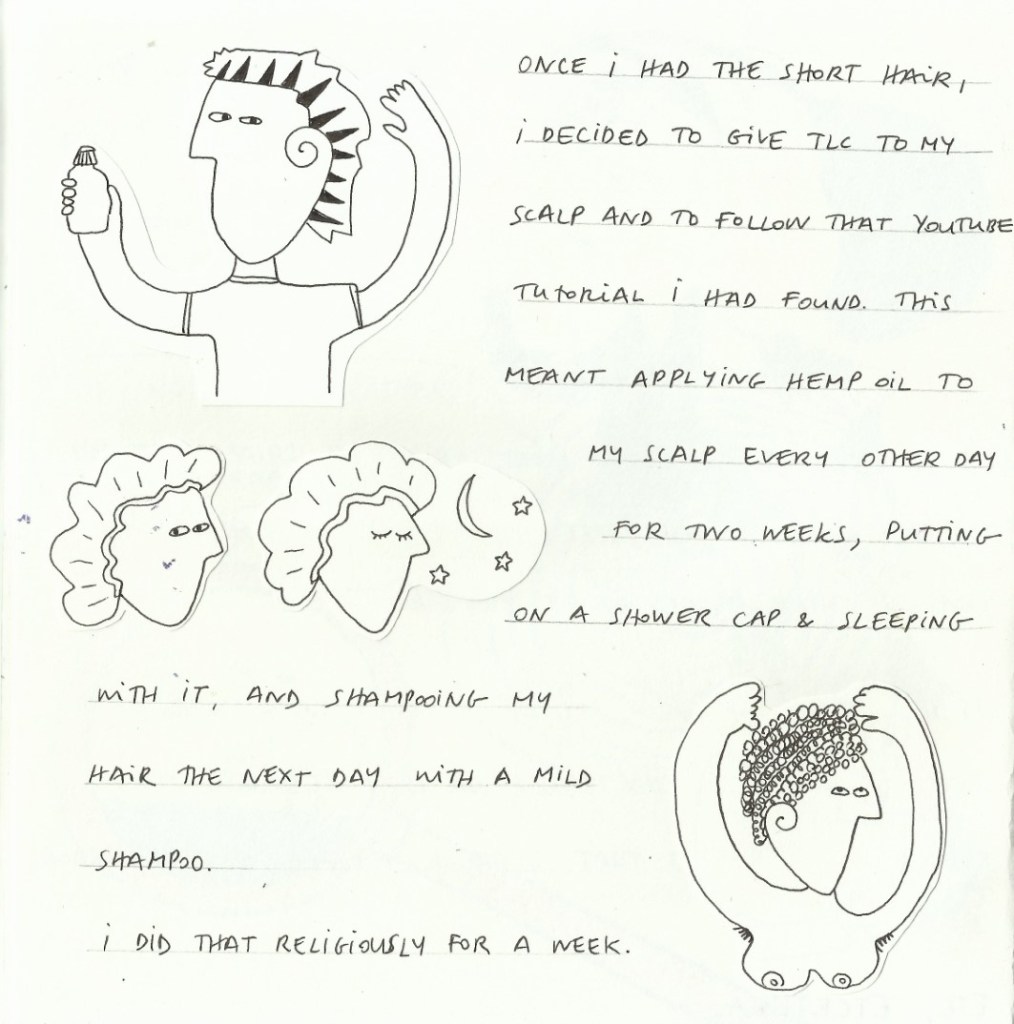 ONCE i HAD THE SHORT HAiR,
i DECIDED TO GiVE TLC TO MY
SCALP AND TO FOLLOW THAT YOUTUBE
TUTORiAL i HAD FOUND. THiS
MEANT APPLYiNG HEMP OiL TO
MY SCALP EVERY OTHER DAY
FOR TWO WEEKS, PUTTiNG
ON A SHOWER CAP & SLEEPiNG
WiTH iT, AND SHAMPOOiNG MY
HAiR THE NEXT DAY WiTH A MiLD
SHAMPOO.
i DiD THAT RELiGiOUSLY FOR A WEEK.